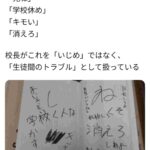 「学校休め」
「キモい」
「消えろ」
校長がこれを「いじめ」ではなく、
「生徒間のトラブル」として扱っている
し
ね
学校くんな
消えろ